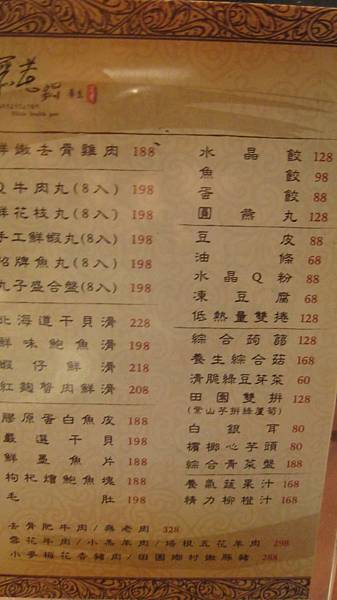 鮮嫩去骨雞肉 188
Q牛肉丸(8入) 198
鮮花枝丸(8入) 198
手工鮮蝦丸(8入) 198
招牌魚丸(8入) 198
丸子盛合盤(8入) 198
北海道干貝滑 228
鮮味鮑魚滑 238
蝦仔鮮滑 218
紅麴蟹肉鮮滑 208
膠原蛋白魚皮 188
嚴選干貝 198
鮮墨魚片 188
枸杞燴鮑魚塊 188
毛肚 198
水晶餃 128
魚餃 98
蛋餃 88
圓燕丸 128
豆皮 88
油條 68
水晶Q粉 88
凍豆腐 68
低熱量雙捲 128
綜合蒟蒻 128
養生綜合菇 168
清脆綠豆芽菜 60
田園雙拼 128
(紫山芋拼綠蘆筍)
白銀耳 80
檳榔心芋頭 80
綜合青菜盤 188
養氣蔬果汁 168
精力柳橙汁 168
去骨肥牛肉/無老肉 328
雪花牛肉/小羔羊肉/培根五花羊肉 298
小麥梅花香豬肉/田園鄉村嫩豚豬 288